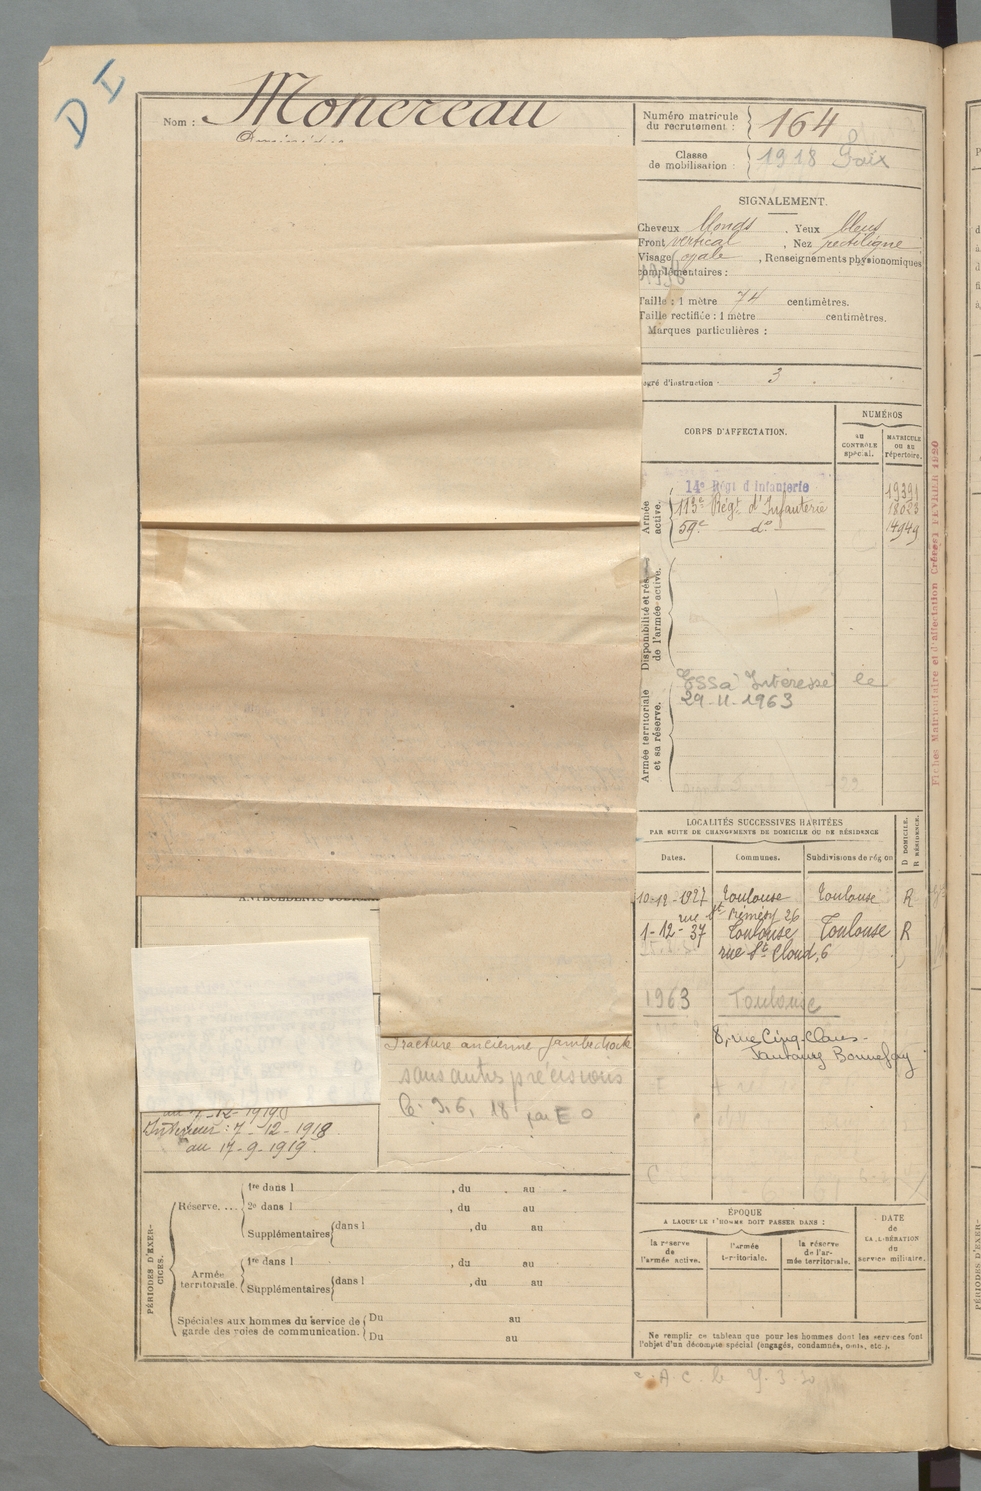 D I
Nom : Moncreau
Numéro matricule
du recrutement : 164
Classe
de mobilisation : 1918
SIGNALEMENT.
Cheveux blonds, Yeux bleus
Front vertical, Nez rectiligne
Visage ovale, Renseignements physionomiques
complémentaires :
Taille : 1 mètre 74 centimètres.
Taille rectifiée : 1 mètre centimètres.
Marques particulières :
egré d'instruction : 3
CORPS D'AFFECTATION.
NUMÉROS
AU CONTRÔLE spécial.
MATRICULE OU AU répertoire.
Armée active.
14e Régt d'Infanterie 19391
113e Régt d'Infanterie 18023
59e do 4949
Disponibilité et rés
de l'armée active.
Armée territoriale
et sa réserve.
Intéressé le
29-11-1963
Fiches Matriculaire et d'affectation Créées FEVRIER 1920
LOCALITÉS SUCCESSIVES HABITÉES
PAR SUITE DE CHANGEMENTS DE DOMICILE OU DE RÉSIDENCE
D DOMICILE.
R RÉSIDENCE.
Dates. Communes. Subdivisions de région
10-12-1927 Toulouse Toulouse R
rue St 26
1-12-37 Toulouse Toulouse R
rue St Cloud, 6
1963 Toulouse
8, rue Cinq-Clous-
Bonnefoy
ANTÉCÉDENTS JUDICI
Fracture ancienne jambe
sans autres précisions
Ce 3, 6, 18 par E O
au 7-12-1919()
Intérieur : 7-12-1918
au 17-9-1919.
PÉRIODES D'EXERCICES.
Réserve. ...
1re dans l , du au
2e dans l , du au
Supplémentaires dans l , du au
Armée
territoriale.
1re dans l , du au
Supplémentaires dans l , du au
Spéciales aux hommes du service de
garde des voies de communication.
Du au
Du au
ÉPOQUE
A LAQUELLE L'HOMME DOIT PASSER DANS :
la réserve de l'armée active.
l'armée territoriale.
la réserve de l'armée territoriale.
DATE
de
LA LIBÉRATION
du
service militaire.
Ne remplir ce tableau que pour les hommes dont les services font
l'objet d'un décompte spécial (engagés, condamnés, omis, etc.).